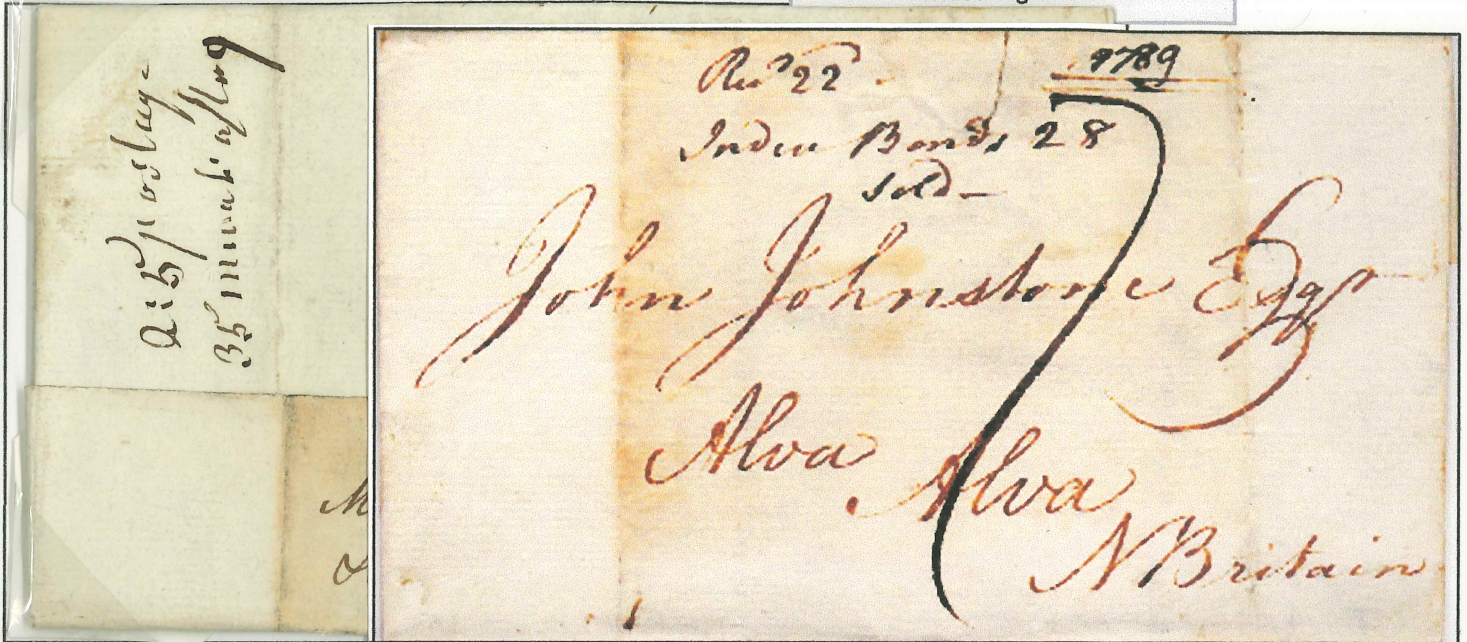 postage
1789
Recd 22
India Bonds 28
Sold
John Johnstone Esqr
Alva
Alva
N Britain
7
M
&